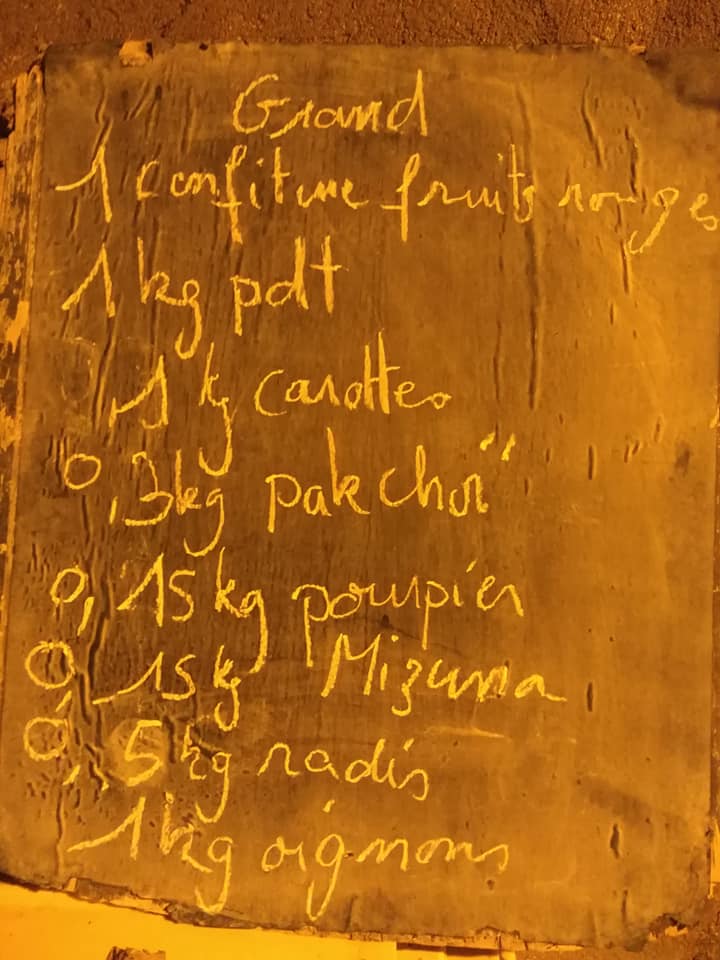 Grand
1 confiture fruits rouges
1 kg pdt
1 kg carottes
0,3kg pak choï
0,15 kg pourpier
0,15 kg Mizuna
0,5 kg radis
1 kg oignons